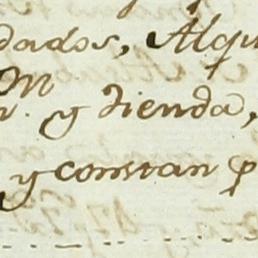 dados, Alqui
y tienda,
y constan p